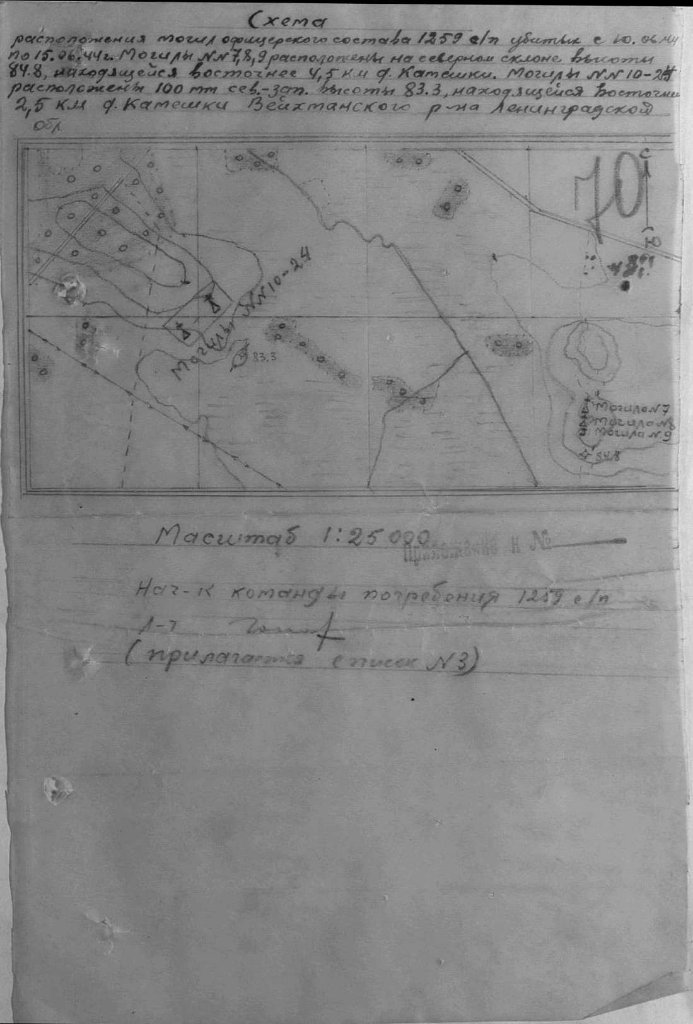 Схема
расположения могил офицерского состава 1259 с/п убитых с 10.06.44
по 15.06.44г. Могилы NN7,8,9 расположены на северном склоне высоты
84.8, находящейся восточнее 4,5 км д. Катешки. Могилы NN 10-24
расположены 100 mm сев.-зап. высоты 83.3, находящейся восточнее
2,5 км д. Катешки Вейхтанского р-на Ленинградской
обл
70
С
Ю
Могилы NN 10-24
83.3
Могила N7
Могила N8
Могила N9
84.8
Масштаб 1:25 000
Нач-к команды погребения 1259 с/п
Л-т
(прилагается список N3)